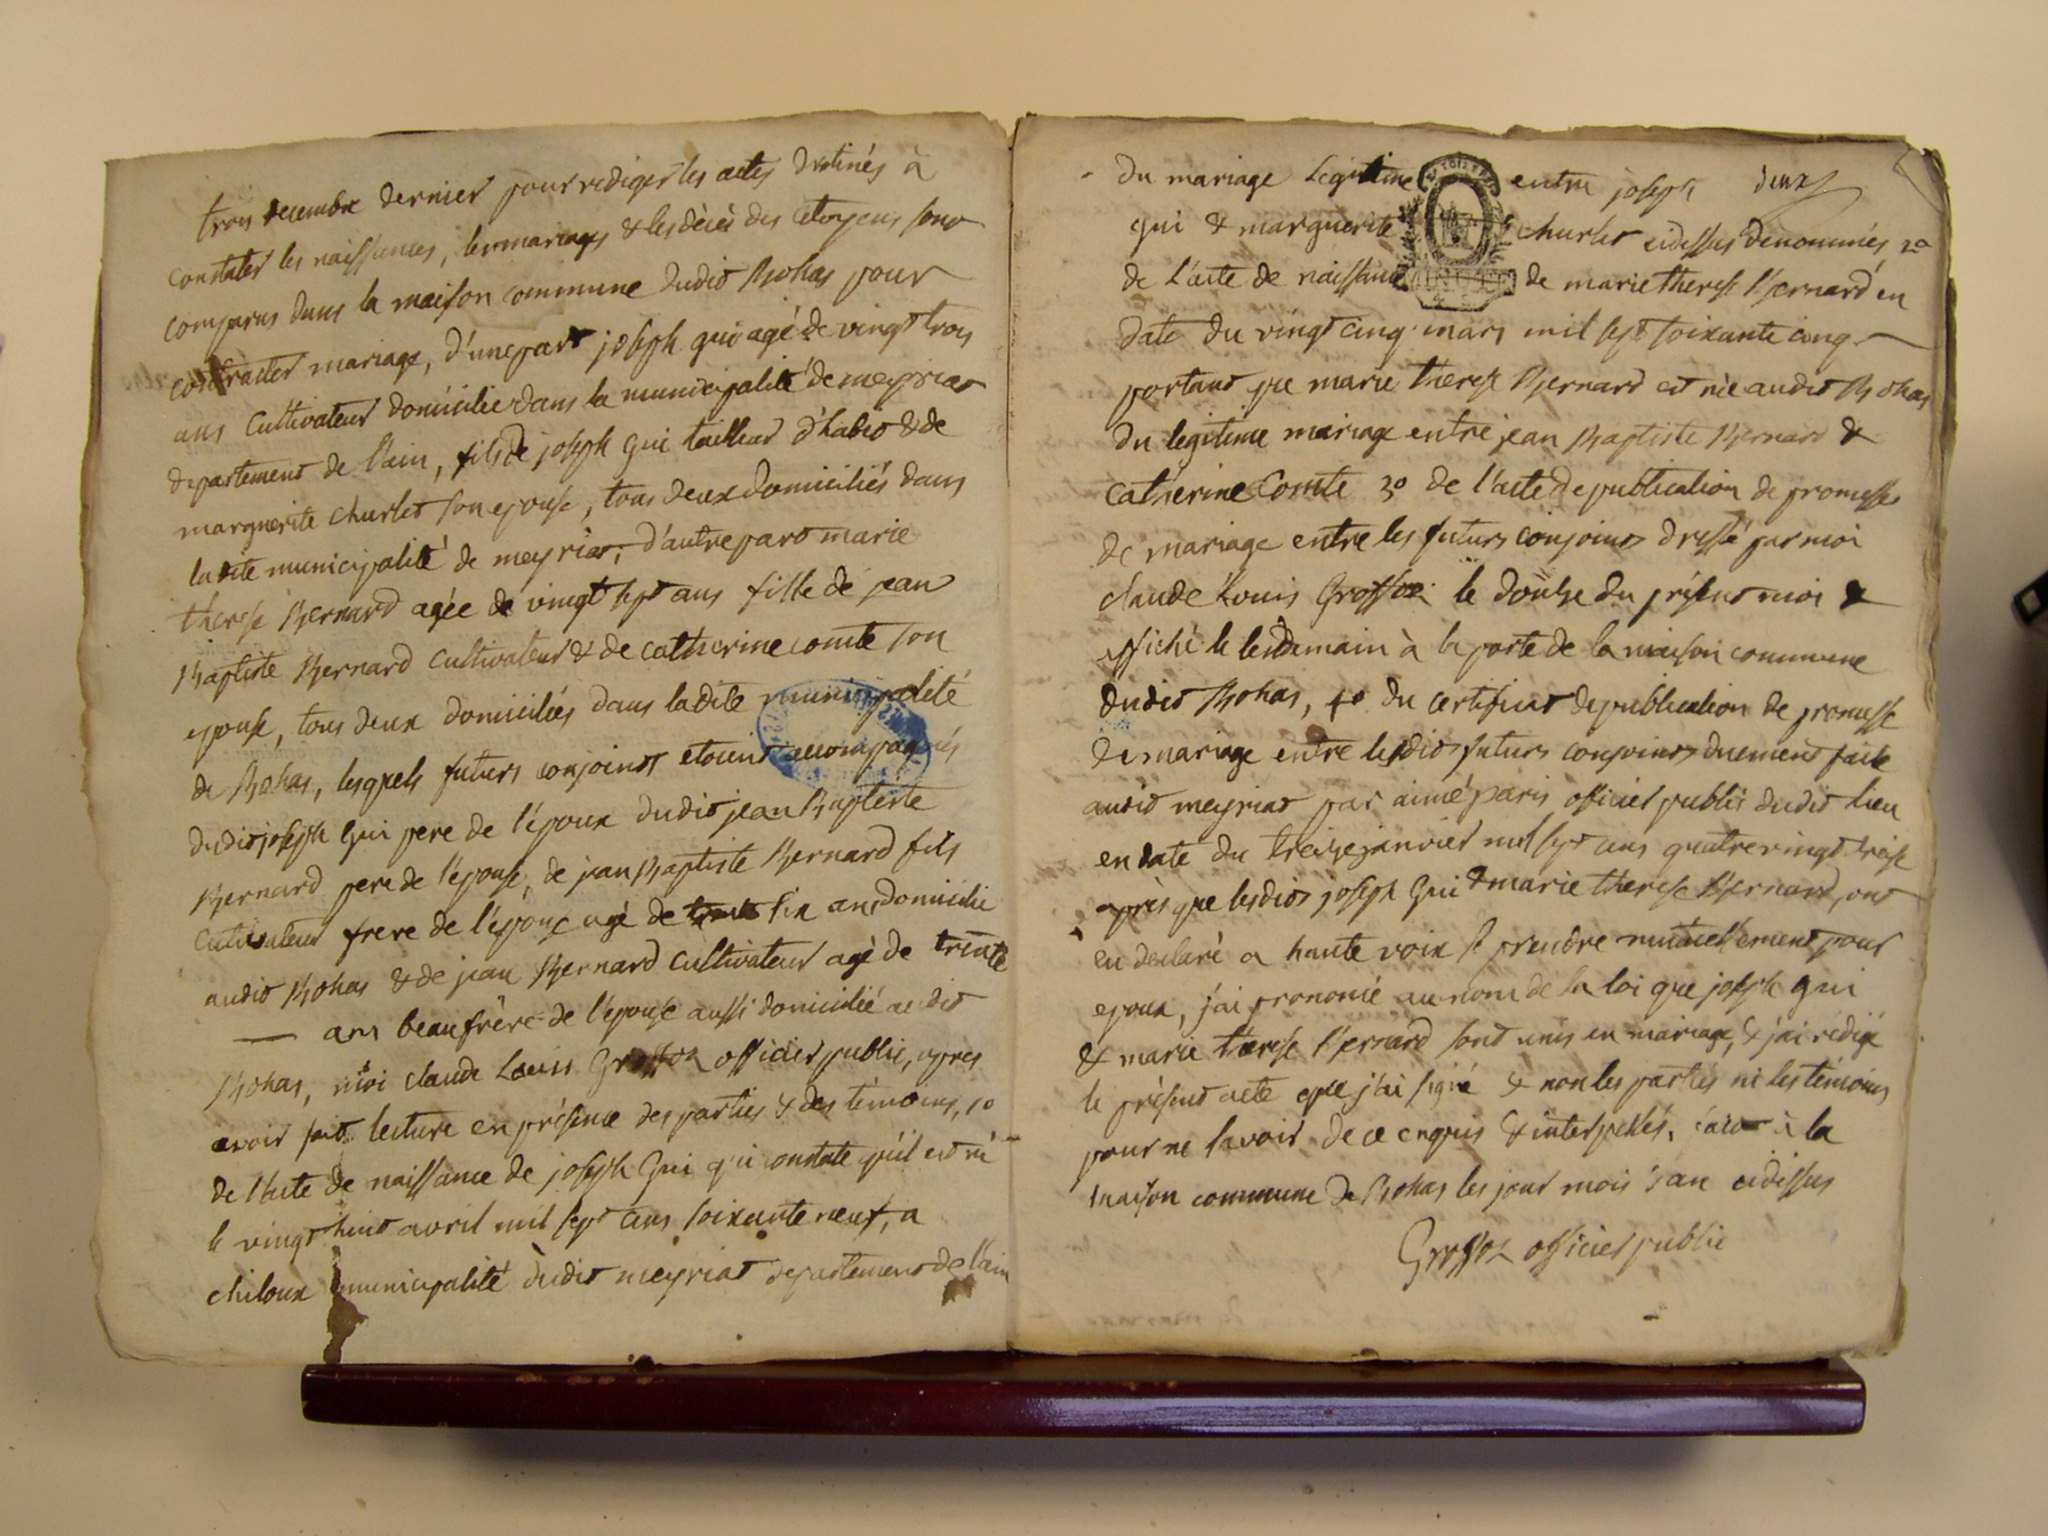 trois decembre dernier pour rediger les actes destinés à
constater les naissances, les mariages & les décès des citoyens sont
comparus dans la maison commune dudit Bohas pour
contracter mariage, d'une part joseph gui agé de vingt trois
ans cultivateur domicilié dans la municipalité de meyriat
departement de l'ain, fils de joseph gui tailleur d'habit & de
marguerite churlet son epouse, tous deux domiciliés dans
ladite municipalité de meyriat; d'autre part marie
therese Bernard agée de vingt sept ans fille de jean
Baptiste Bernard cultivateur & de catherine comte son
epouse, tous deux domiciliés dans ladite municipalité
de Bohas, lesquels futurs conjoints etoient accompagnés
dudit joseph gui pere de l'époux dudit jean Baptiste
Bernard pere de l'épouse, de jean Baptiste Bernard fils
cultivateur frere de l'épouse agé de trente six ans domicilié
audit Bohas & de jean Bernard cultivateur agé de trente
— ans beaufrère de l'épouse aussi domicilié audit
Bohas, moi claude Louis Grosson officier public, apres
avoir fait lecture en présence des parties & des témoins, 1o
de l'acte de naissance de joseph gui qui constate qu'il est né
le vingt huit avril mil sept cens soixante neuf, a
chiloux municipalité dudit meyriat departement de l'ain
deux
du mariage legitime entre joseph
gui & marguerite churlet cidessus denommés, 2o
de l'acte de naissance de marie therese Bernard en
date du vingt cinq mars mil sept soixante cinq
portant que marie therese Bernard est née audit Bohas
du legitime mariage entre jean Baptiste Bernard &
catherine Comte 3o de l'acte de publication de promesse
de mariage entre les futurs conjoints dressé par moi
claude Louis Grosson le douze du présent moi &
affiché le lendemain à la porte de la maison commune
dudit Bohas, 4o du certificat de publication de promesse
de mariage entre lesdits futurs conjoints duement faite
audit meyriat par aimé paris officier public dudit lieu
en date du treize janvier mil sept cens quatre vingt treise
après que lesdits joseph gui & marie therese Bernard, ont
eu declaré a haute voix se prendre mutuellement pour
epoux, j'ai prononcé au nom de la loi que joseph gui
& marie therese Bernard sont unis en mariage, & j'ai rédigé
le présent acte que j'ai signé & non les parties ni les témoins
pour ne savoir de ce enquis & interpellés, fait à la
maison commune de Bohas les jour mois & an cidessus
Grosson officier public